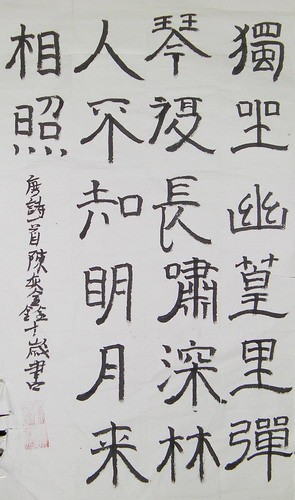 獨坐幽篁里彈
琴復長嘯深林
人不知明月来
相照
唐詩一首陳奕鑫十歲書